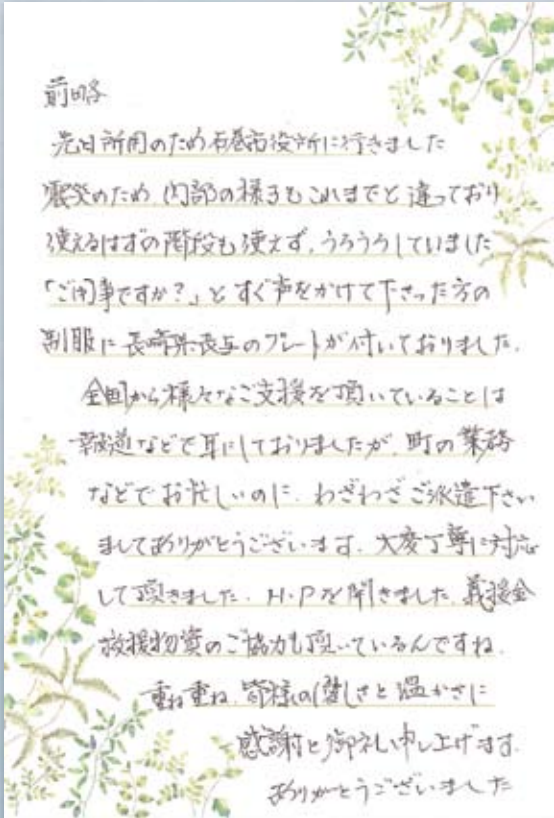 前略
先日所用のため石巻市役所に行きました
震災のため 内部の様子もこれまでと違っており
使えるはずの階段も使えず、うろうろしていました
「ご用事ですか?」とすぐ声をかけて下さった方の
制服に長崎県長与のプレートが付いておりました。
全国から様々なご支援を頂いていることは
報道などで耳にしておりましたが、町の業務
などでお忙しいのに、わざわざご派遣下さい
ましてありがとうございます。大変丁寧に対応
して頂きました。H・Pを開きました。義援金
救援物資のご協力も頂いているんですね。
重ね重ね、皆様の優しさと温かさに
感謝と御礼申し上げます。
ありがとうございました